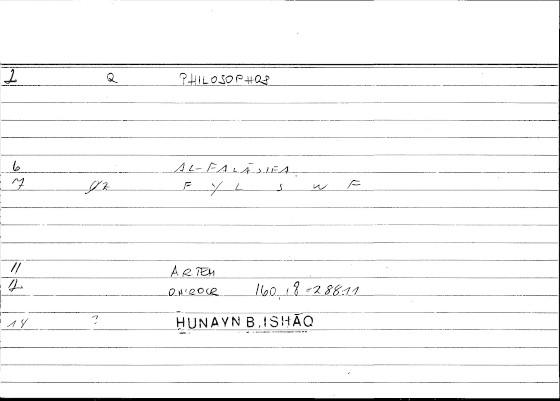 1 Q PHILOSOPHOS
6 AL-FALĀSIFA
7 F Y L S W F
11 ARTEM
ONIROCR 160,18=288.11
14 ? ḤUNAYN B. ISḤĀQ